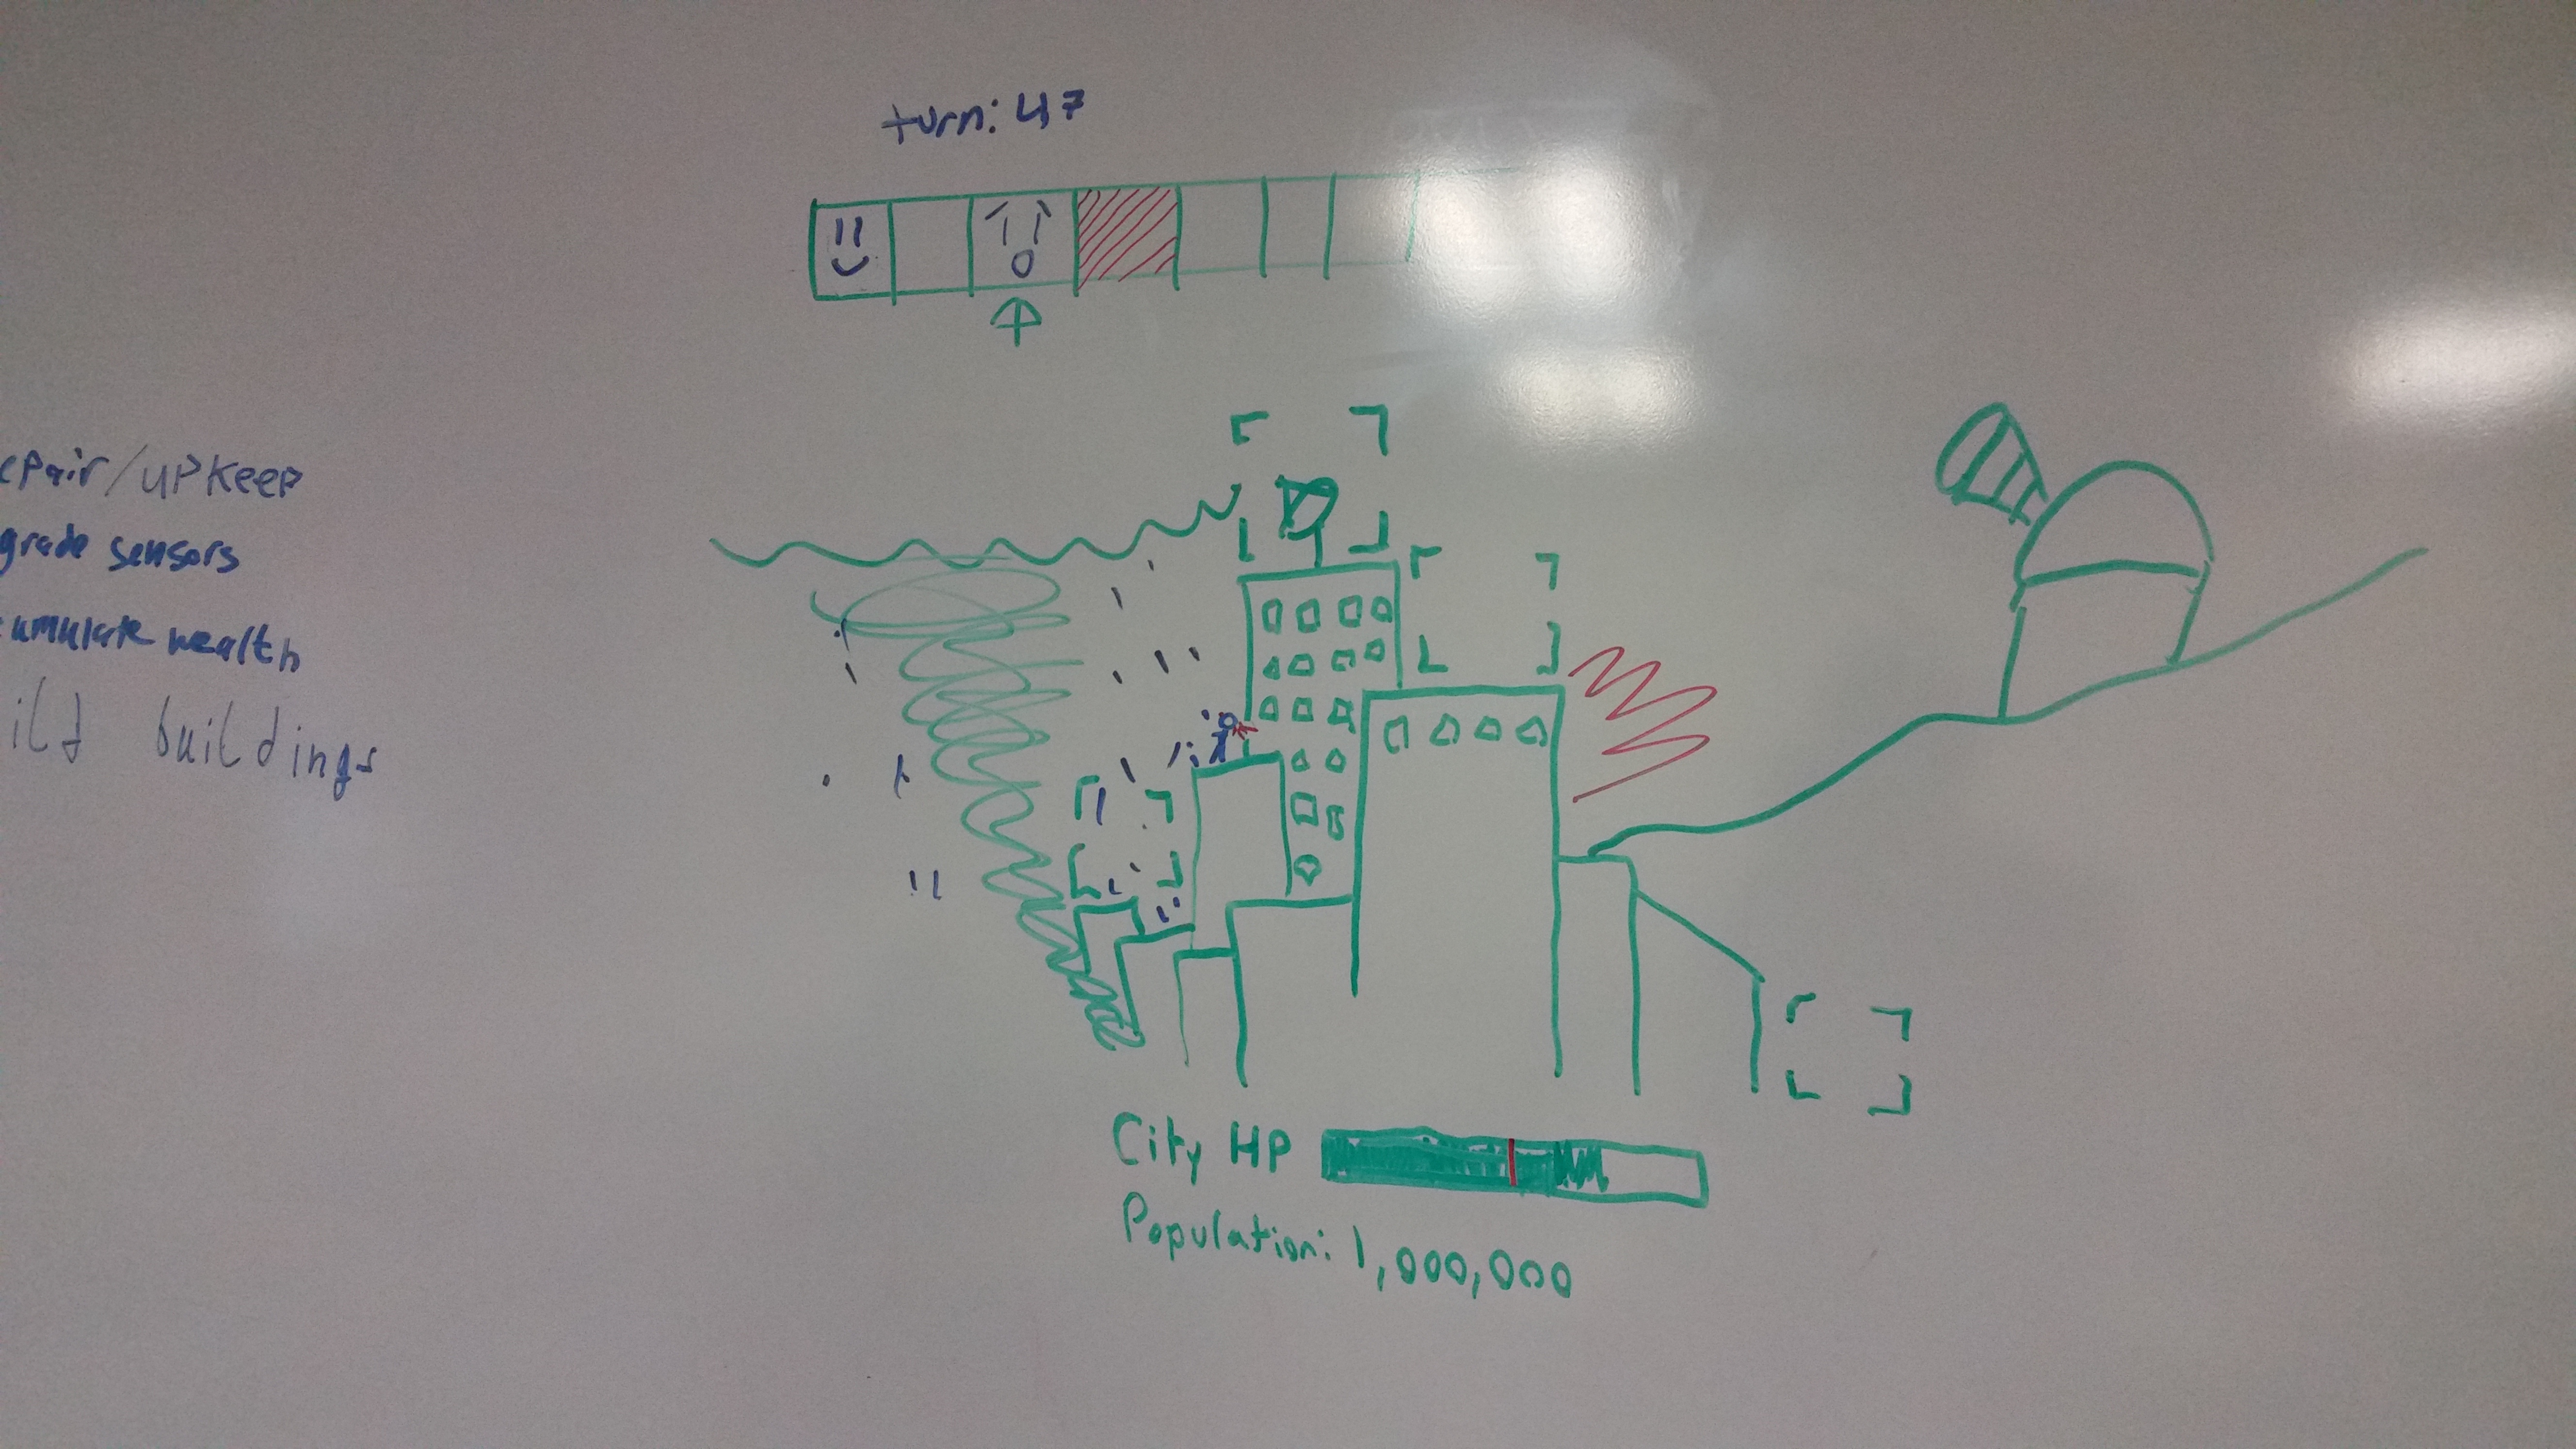 turn: 47
epair/upkeep
grade sensors
cumulate wealth
ild buildings
City HP
Population: 1,000,000